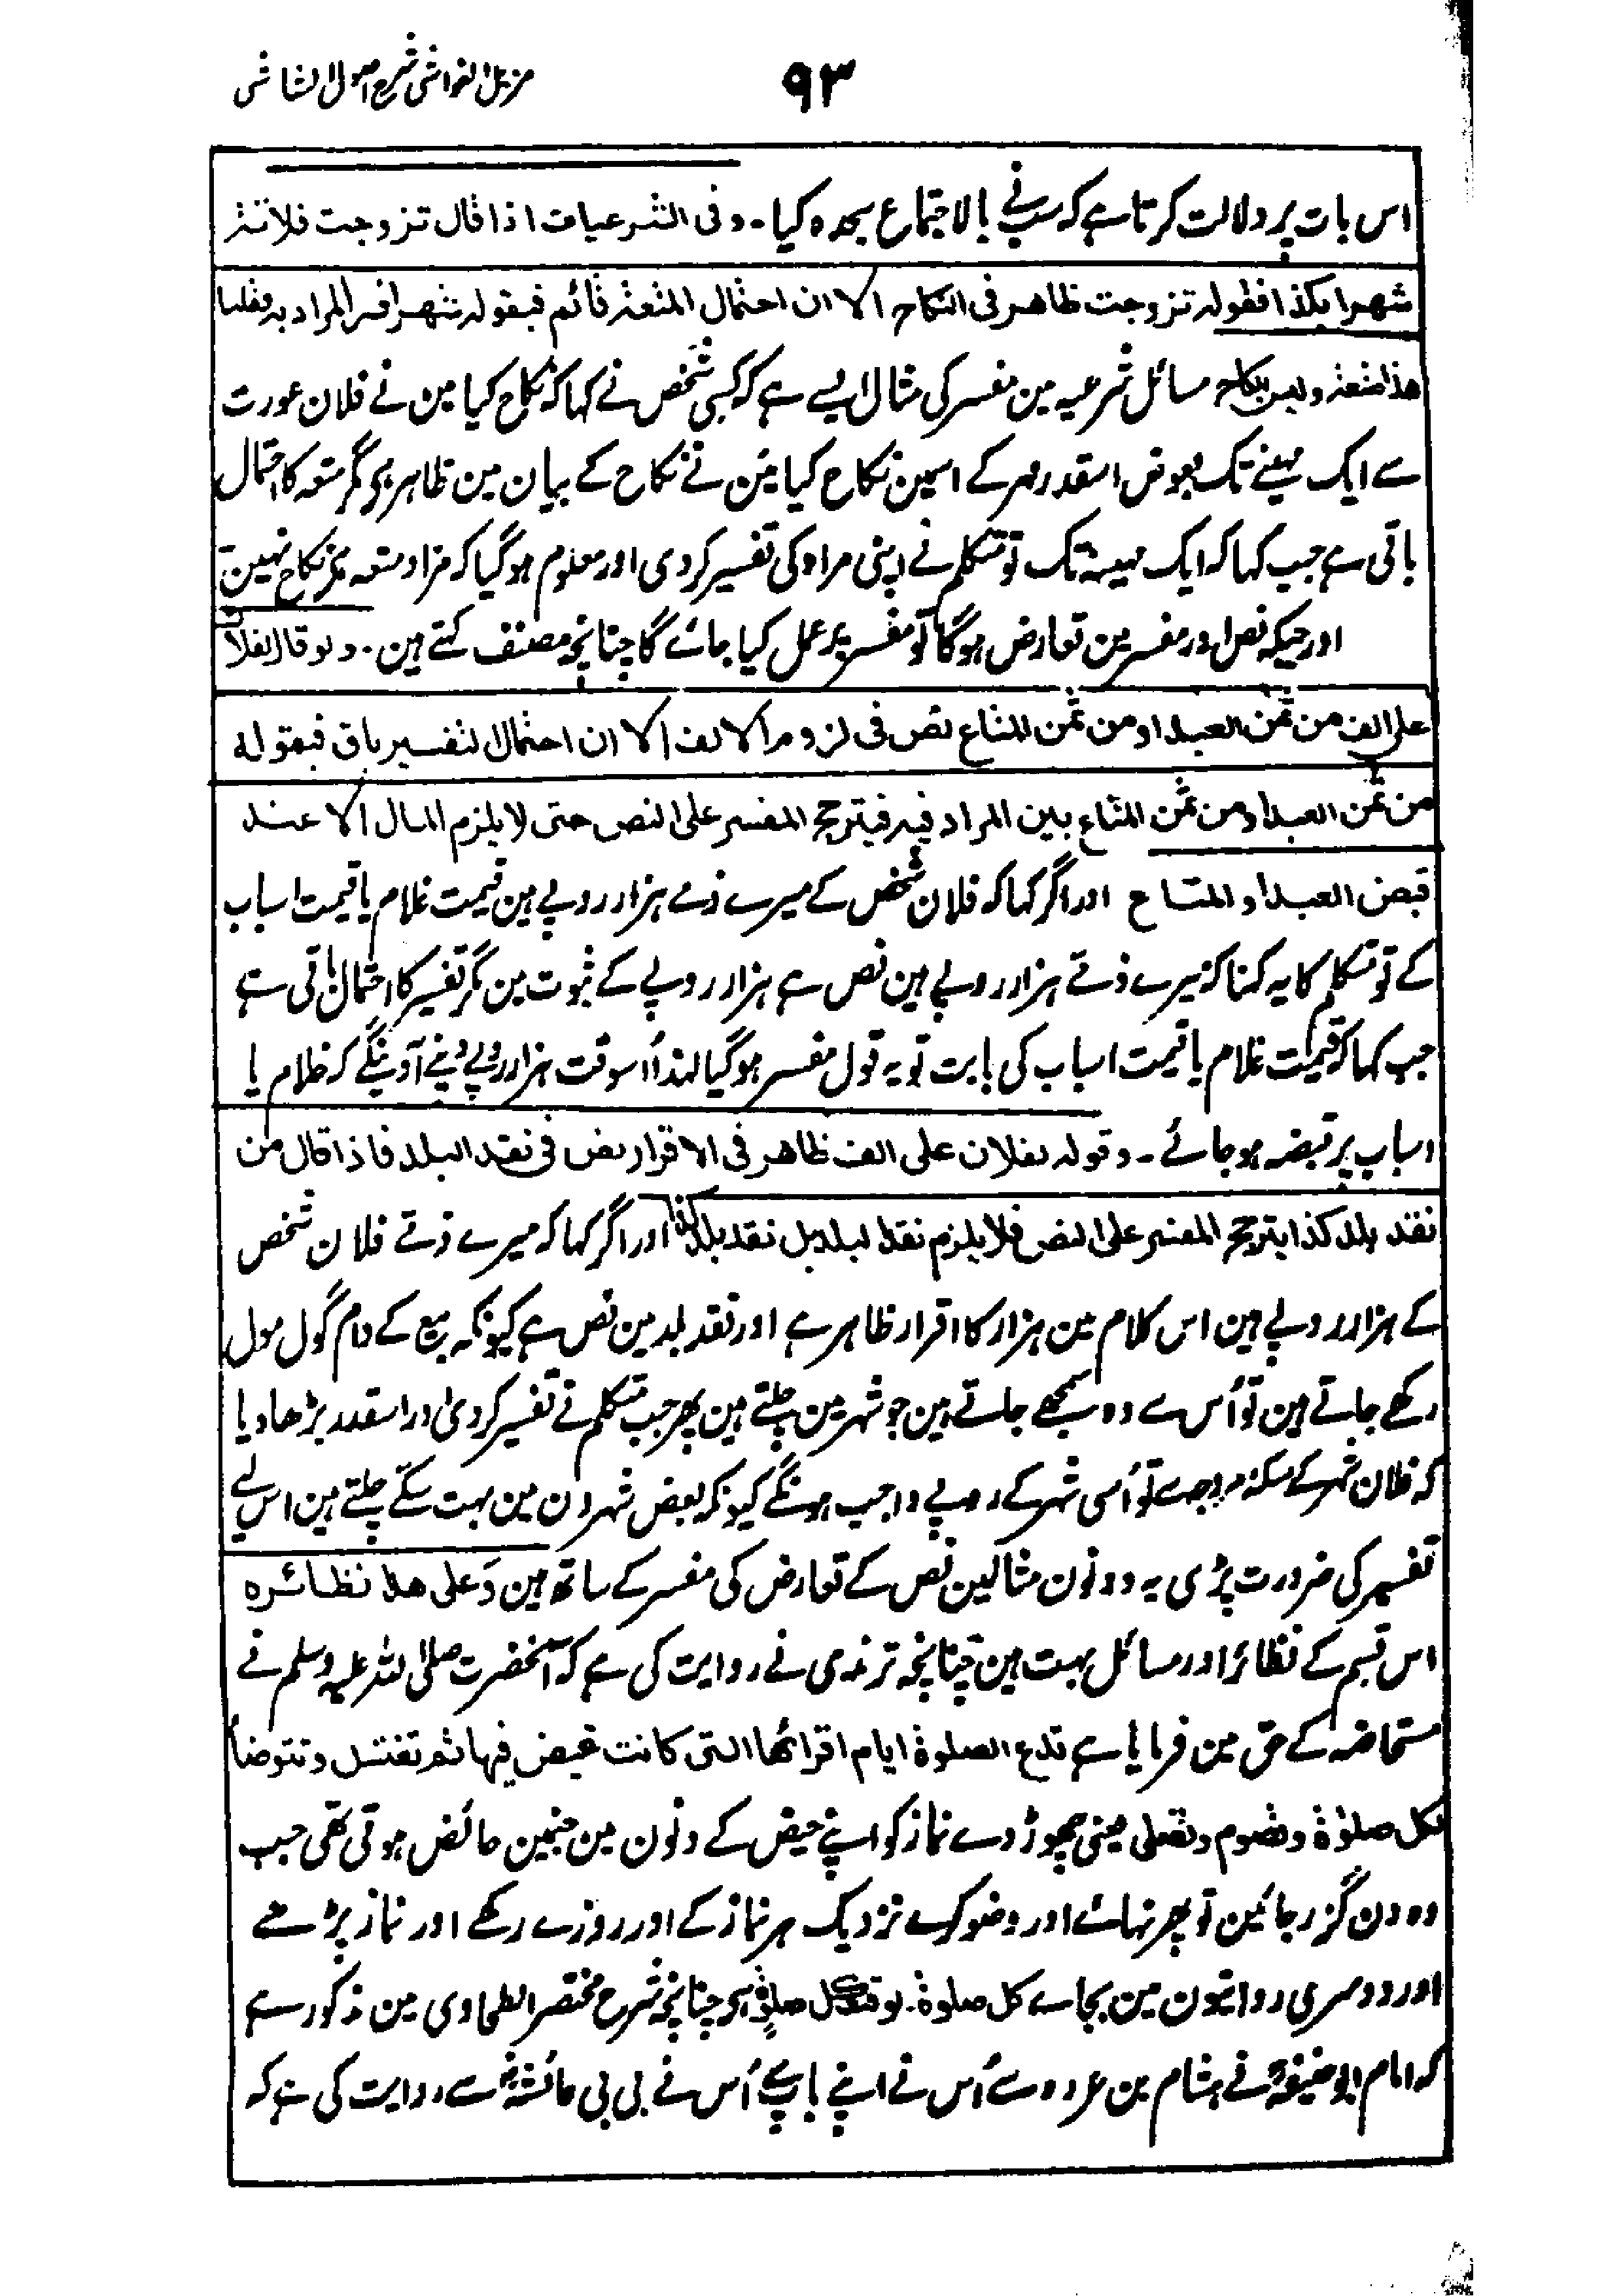 ۹۳
مزیل الغواشی شرح اصول الشاشی
اس بات پر دلالت کرتا ہے کہ سب نے بالاجتماع سجدہ کیا۔ وفی الشرعیات اذا قال تزوجت فلانۃ
شھرا بکذا فقولہ تزوجت ظاھر فی النکاح الا ان احتمال المتعۃ قائم فبقولہ شھرا فسر المراد بہ فقلنا
ھذا متعۃ ولیس بنکاح مسائل شرعیہ مین مفسر کی مثال ایسے ہے کہ کسی شخص نے کہا کہ نکاح کیا مین نے فلان عورت
سے ایک مہینے تک بعوض اسقدر مہر کے اسمین نکاح کیا مین نے نکاح کے بیان مین ظاہر ہی مگر متعہ کا احتمال
باقی ہے جب کہا کہ ایک مہینہ تک تو متکلم نے اپنی مراد کی تفسیر کر دی اور معلوم ہو گیا کہ مراد متعہ ہی نکاح نہین
اور جبکہ نص اور مفسر مین تعارض ہوگا تو مفسر پر عمل کیا جائے گا چنانچہ مصنف کہتے ہین۔ ولو قال لفلان
علی الف من ثمن العبد او من ثمن المتاع نص فی لزوم الالف الا ان احتمال التفسیر باق فبقولہ
من ثمن العبد او من ثمن المتاع بین المراد فیہ فیترجح المفسر علی النص حتی لا یلزم المال الا عند
قبض العبد او المتاع اور اگر کہا کہ فلان شخص کے میرے ذمے ہزار روپے ہین قیمت غلام یا قیمت اسباب
کے تو متکلم کا یہ کہنا کہ میرے ذمے ہزار روپے ہین نص ہے ہزار روپے کے ثبوت مین مگر تفسیر کا احتمال باقی ہے
جب کہا کہ قیمت غلام یا قیمت اسباب کی بابت تو یہ قول مفسر ہو گیا لہذا اسوقت ہزار روپے دینے آوینگے کہ غلام یا
اسباب پر قبضہ ہو جائے۔ وقولہ لفلان علی الف ظاھر فی الاقرار نص فی نقد البلد فاذا قال من
نقد بلد کذا یترجح المفسر علی النص فلا یلزم نقد البلد بل نقد بلد کذا اور اگر کہا کہ میرے ذمے فلان شخص
کے ہزار روپے ہین اس کلام مین ہزار کا اقرار ظاہر ہے اور نقد بلد مین نص ہے کیونکہ بیع کے دام گول مول
رکھے جاتے ہین تو اُس سے وہ سمجھے جاتے ہین جو شہر مین چلتے ہین پھر جب متکلم نے تفسیر کر دی اور اسقدر بڑھا دیا
کہ فلان شہر کے سکہ مروجہ سے تو اُسی شہر کے روپے واجب ہونگے کیونکہ بعض شہرون مین بہت سکے چلتے ہین اس لیے
تفسیر کی ضرورت پڑی یہ دونون مثالین نص کے تعارض کی مفسر کے ساتھ ہین وعلی ھذا نظائرہ
اس قسم کے نظائر اور مسائل بہت ہین چنانچہ ترمذی نے روایت کی ہے کہ آنحضرت صلی اللہ علیہ وسلم نے
مستحاضہ کے حق مین فرمایا ہے تدع الصلوۃ ایام اقرائھا التی کانت تحیض فیھا ثم تغتسل وتتوضأ
لکل صلوۃ وتصوم وتصلی یعنی چھوڑ دے نماز کو اپنے حیض کے دنون مین جنمین حائض ہوتی تھی جب
وہ دن گزر جائین تو پھر نہائے اور وضو کرے نزدیک ہر نماز کے اور روزے رکھے اور نماز پڑھے
اور دوسری روایتون مین بجاے کل صلوۃ۔ لوقت کل صلوۃ ہی چنانچہ شرح مختصر الطحاوی مین مذکور ہے
کہ امام ابو حنیفہ نے ہشام بن عروہ سے اُس نے اپنے باپ سے اُس نے بی بی عائشہ سے روایت کی ہے کہ